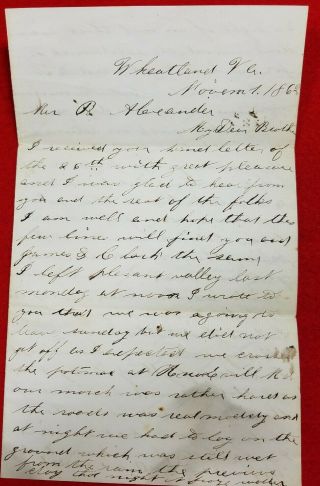 Wheatland Va.
Novem 1. 186
Mr R. Alexander
My Dear Brother
I received your kind letter of
the 26th with great pleasure
and I was glad to hear from
you and the rest of the folks
I am well and hope that this
few lines will find you and
James & Clark the same
I left plesant valley last
monday at noon I wrote to
you that we was agoing to
leav sunday but we did not
get off as I expected we crosed
the potomac at Knoxvill Md
our march was rather hard as
the roads was real muddy and
at night we had to lay on the
ground which was still wet
from the rain the previous
day that night